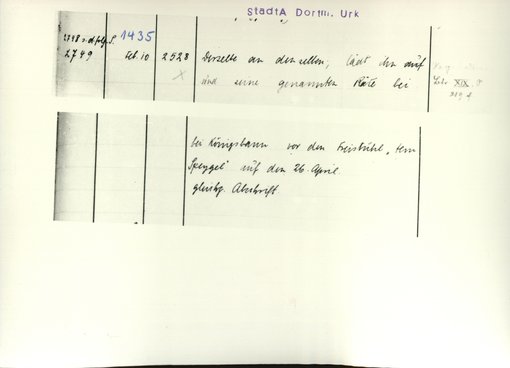 StadtA Dortm. Urk
2748 s. d. folg. S.
1435
2749 Feb. 10 2528 Derselbe an denselben, lädt ihn auf
und seine genannten Räte bei
XIX
319
bei Königsbann vor den Freistuhl „tem
Speygel" auf den 26. April
gleichz. Abschrift